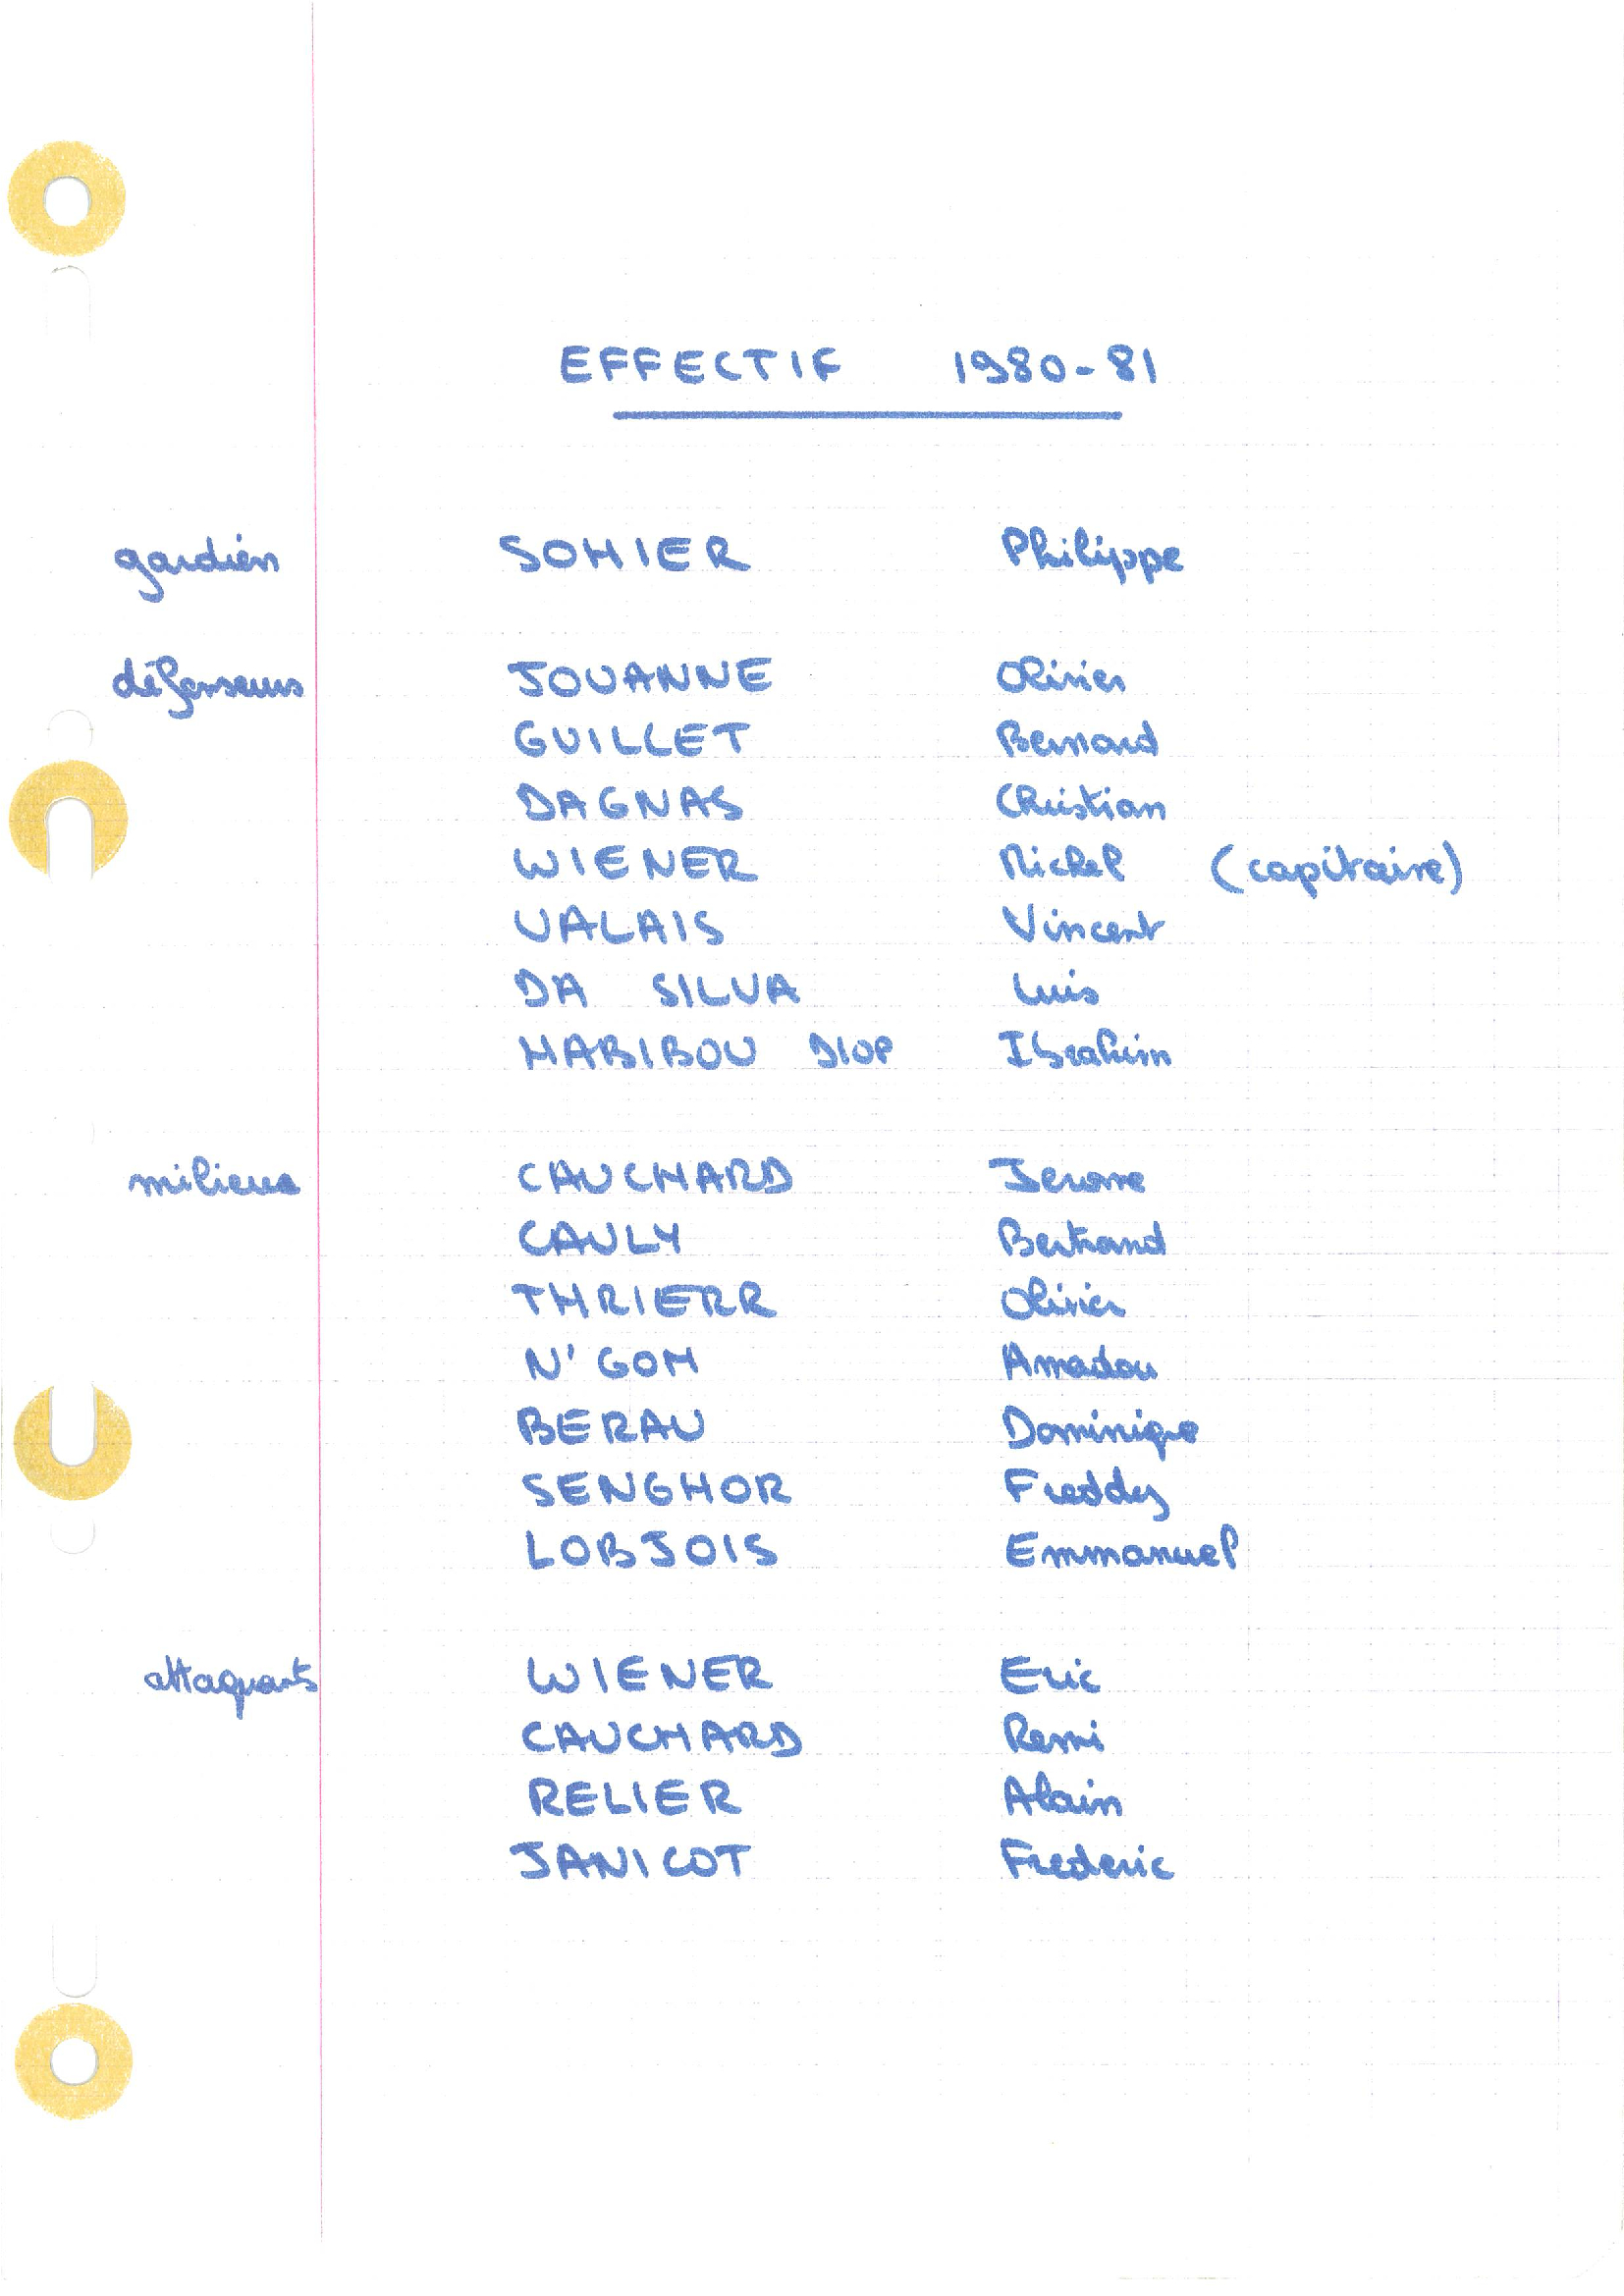 EFFECTIF 1980-81
gardien SOHIER Philippe
défenseurs JOUANNE Olivier
GUILLET Bernard
DAGNAS Christian
WIENER Michel (capitaine)
VALAIS Vincent
DA SILVA Luis
HABIBOU DIOP Ibrahim
milieux CAUCHARD Jerome
CAULY Bertrand
THRIERR Olivier
N'GOM Amadou
BERAU Dominique
SENGHOR Freddy
LOBJOIS Emmanuel
attaquants WIENER Eric
CAUCHARD Remi
RELIER Alain
JANICOT Frederic